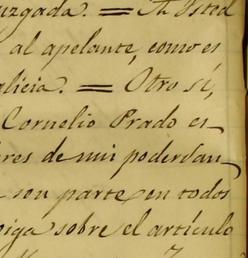 uzgada. = A Usted
al apelante, como es
alicia. = Otro sí,
Cornelio Prado es-
res de mi poderdan-
son parte en todos
iga sobre el artículo